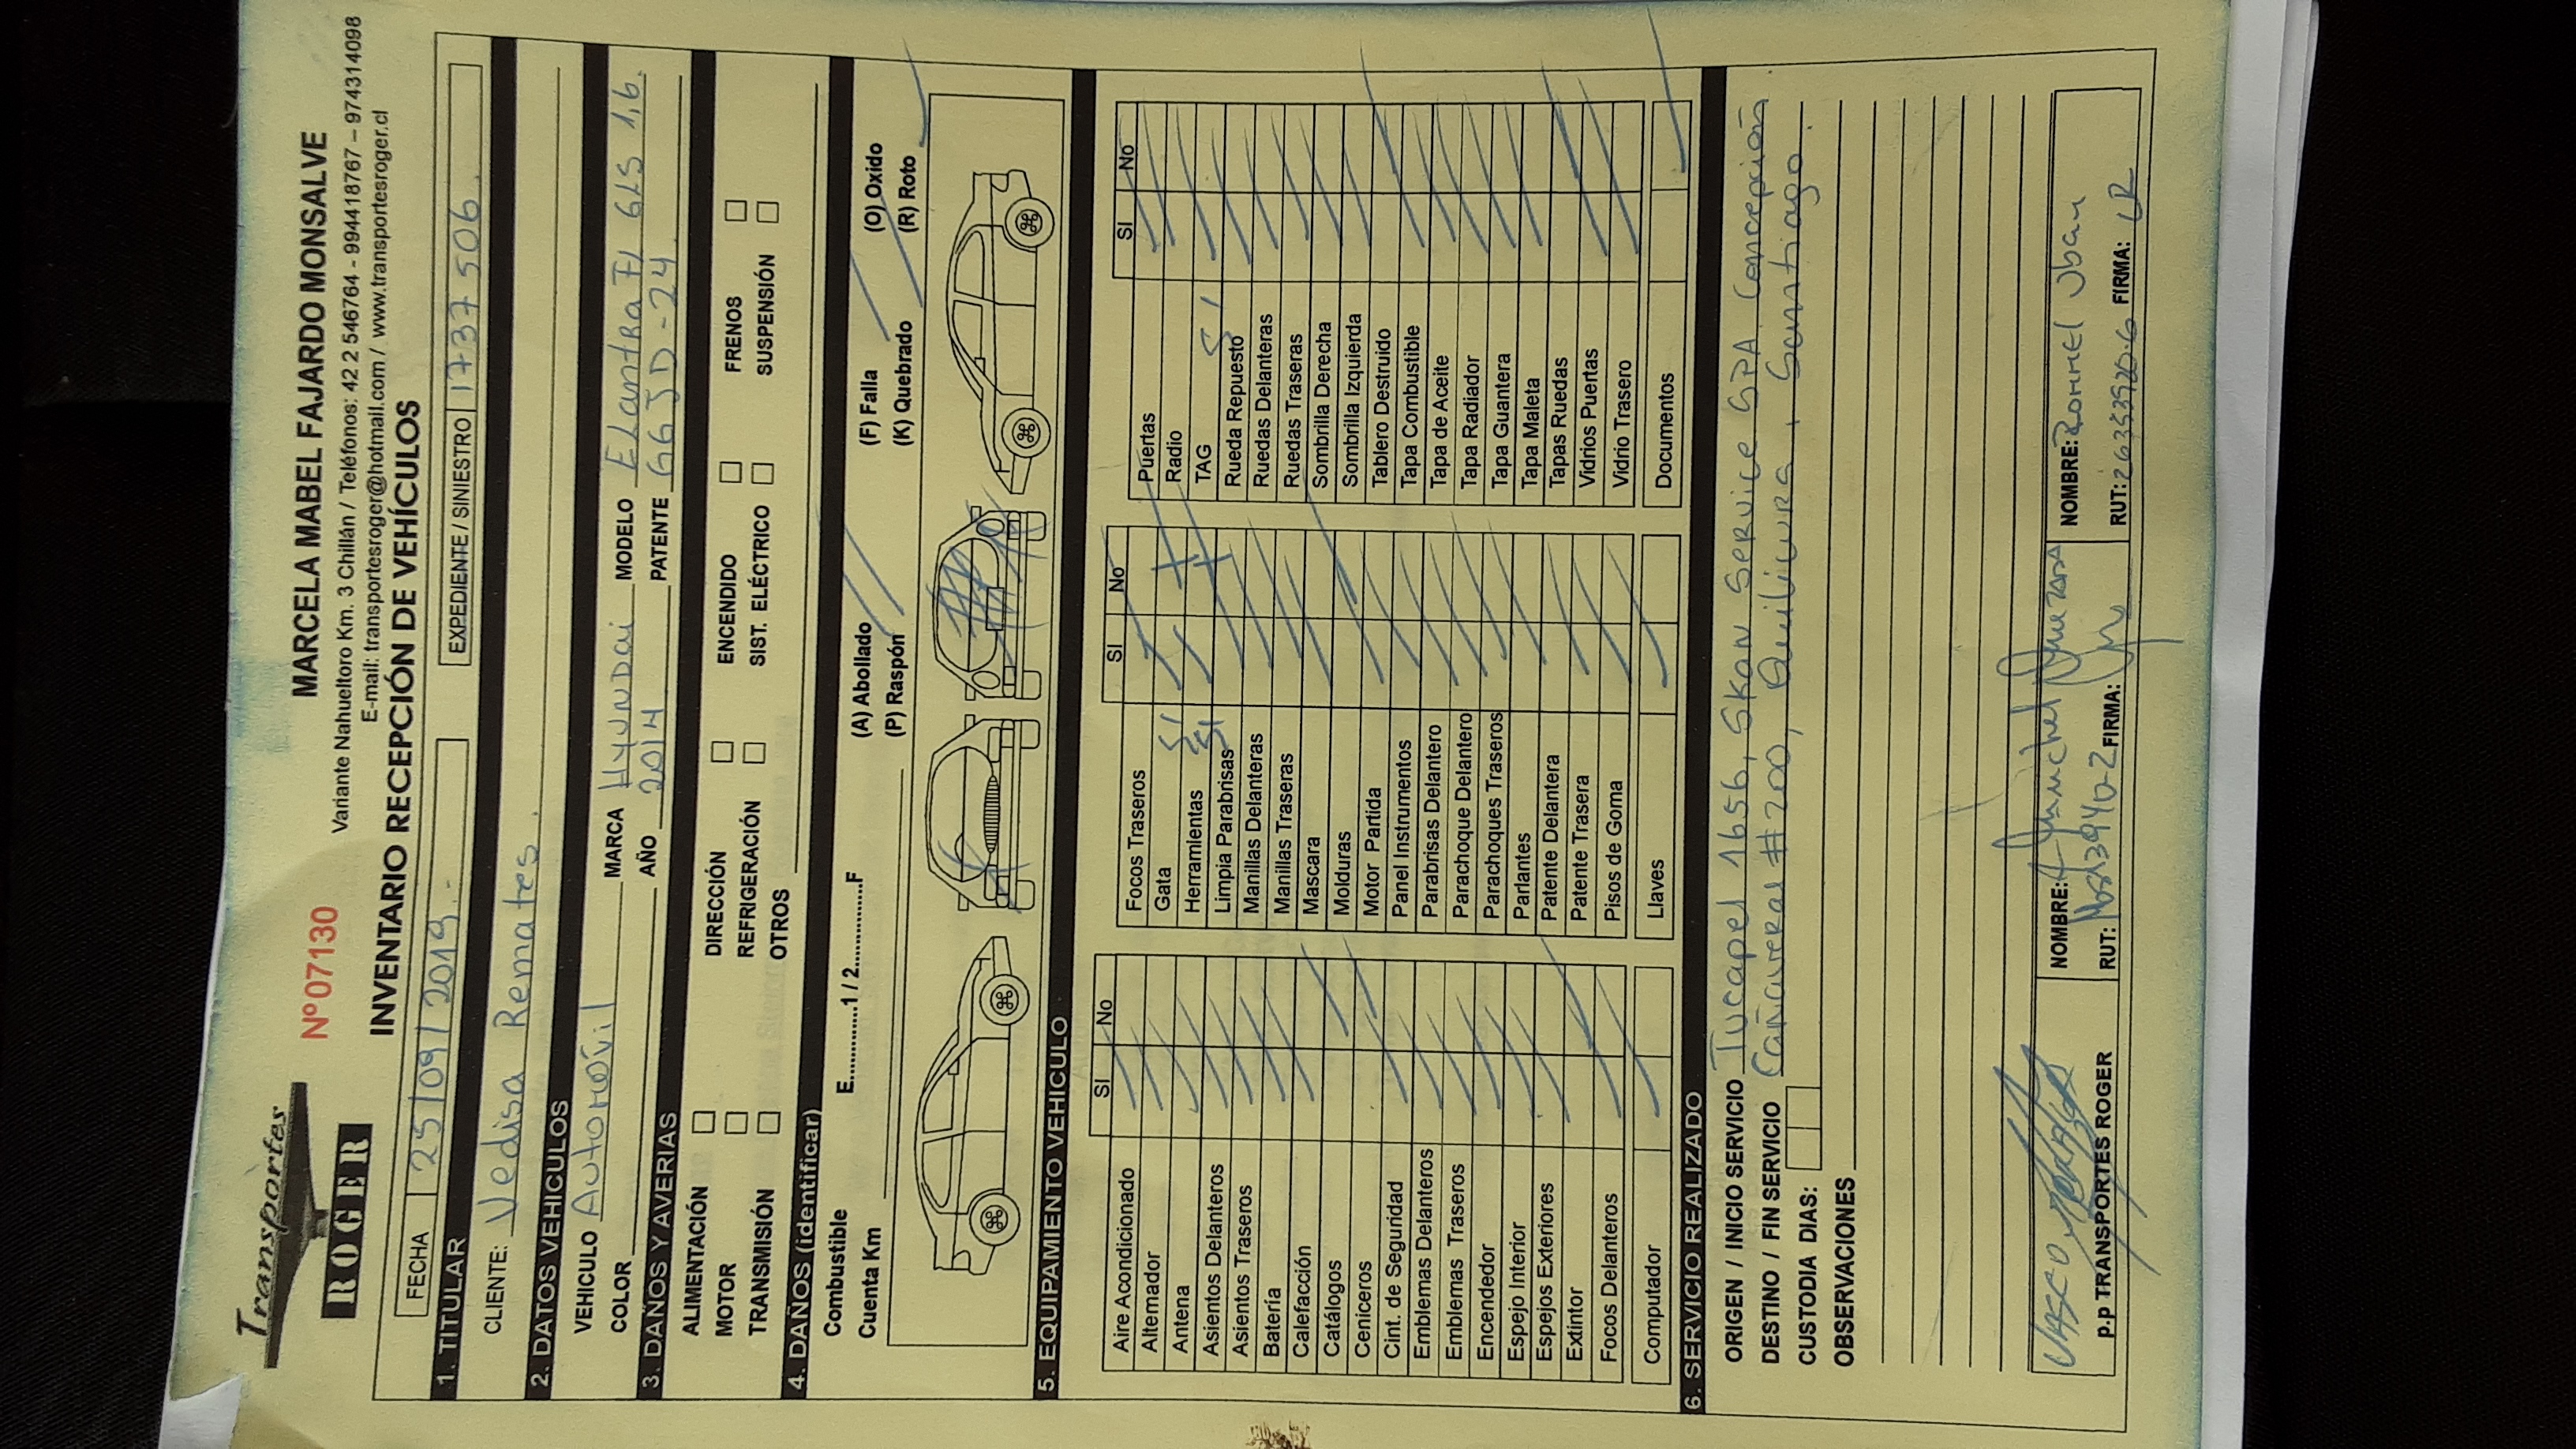 Transportes
ROGER
Nº 07130
MARCELA MABEL FAJARDO MONSALVE
Variante Nahueltoro Km. 3 Chillán / Teléfonos: 42 2 546764 - 994418767 – 974314098
E-mail: transportesroger@hotmail.com / www.transportesroger.cl
INVENTARIO RECEPCIÓN DE VEHÍCULOS
FECHA 25/09/2019.- EXPEDIENTE / SINIESTRO 1737506.
1. TITULAR
CLIENTE: Vedisa Remates.
2. DATOS VEHICULOS
VEHICULO Automóvil MARCA Hyundai MODELO Elantra F/ GLS 1,6.
COLOR AÑO 2014 PATENTE GGJD-24
3. DAÑOS Y AVERIAS
ALIMENTACIÓN DIRECCIÓN ENCENDIDO FRENOS
MOTOR REFRIGERACIÓN SIST. ELÉCTRICO SUSPENSIÓN
TRANSMISIÓN OTROS
4. DAÑOS (identificar)
Combustible E............1 / 2..............F (A) Abollado (F) Falla (O) Oxido
Cuenta Km (P) Raspón (K) Quebrado (R) Roto
5. EQUIPAMIENTO VEHICULO
SI No SI No SI No
Aire Acondicionado Focos Traseros Puertas
Alternador Gata Si Radio
Antena Herramientas Si TAG
Asientos Delanteros Limpia Parabrisas Rueda Repuesto Si
Asientos Traseros Manillas Delanteras Ruedas Delanteras
Batería Manillas Traseras Ruedas Traseras
Calefacción Mascara Sombrilla Derecha
Catálogos Molduras Sombrilla Izquierda
Ceniceros Motor Partida Tablero Destruido
Cint. de Seguridad Panel Instrumentos Tapa Combustible
Emblemas Delanteros Parabrisas Delantero Tapa de Aceite
Emblemas Traseros Parachoque Delantero Tapa Radiador
Encendedor Parachoques Traseros Tapa Guantera
Espejo Interior Parlantes Tapa Maleta
Espejos Exteriores Patente Delantera Tapas Ruedas
Extintor Patente Trasera Vidrios Puertas
Focos Delanteros Pisos de Goma Vidrio Trasero
Computador Llaves Documentos
6. SERVICIO REALIZADO
ORIGEN / INICIO SERVICIO Tucapel 1656, Skan Service SPA. Concepción
DESTINO / FIN SERVICIO Cañaveral #200, Quilicura, Santiago.
CUSTODIA DIAS:
OBSERVACIONES
NOMBRE: NOMBRE: Rommel
p.p TRANSPORTES ROGER RUT: FIRMA: RUT: 26353920-6 FIRMA: